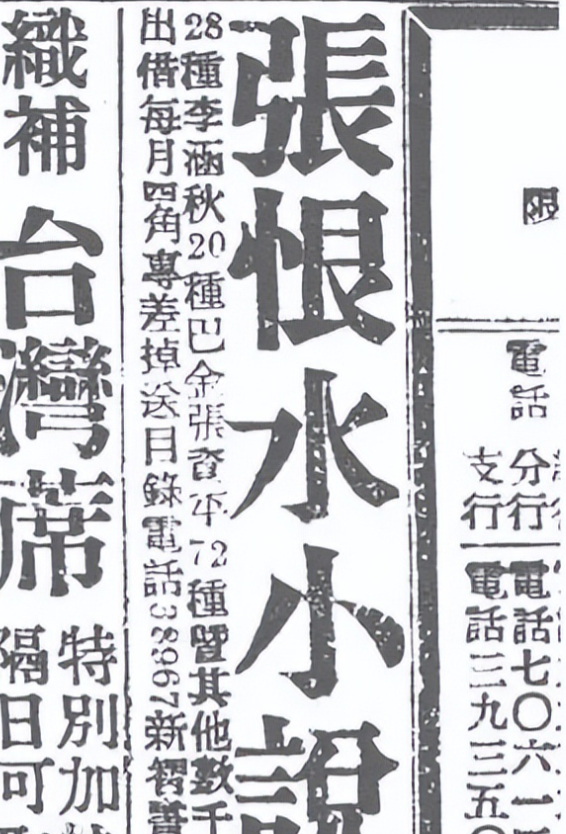 限
電話
分行
支行
電話七〇六一
電話三九三五
張恨水小說
28種李涵秋20種巴金張資平72種暨其他數千
出借每月四角專差掉送目錄電話38967新
織補
台灣蓆
特別加
隔日可